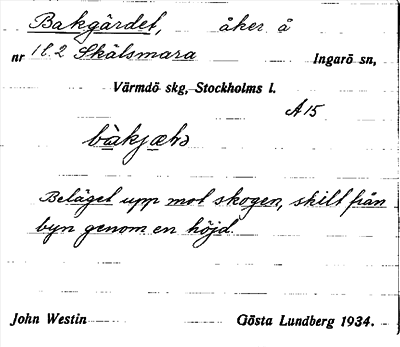 Bakgärdet, åker å
nr 1 l. 2 Skälsmara Ingarö sn,
Värmdö skg, Stockholms l.
A 15
Beläget upp mot skogen, skilt från
byn genom en höjd.
John Westin Gösta Lundberg 1934.